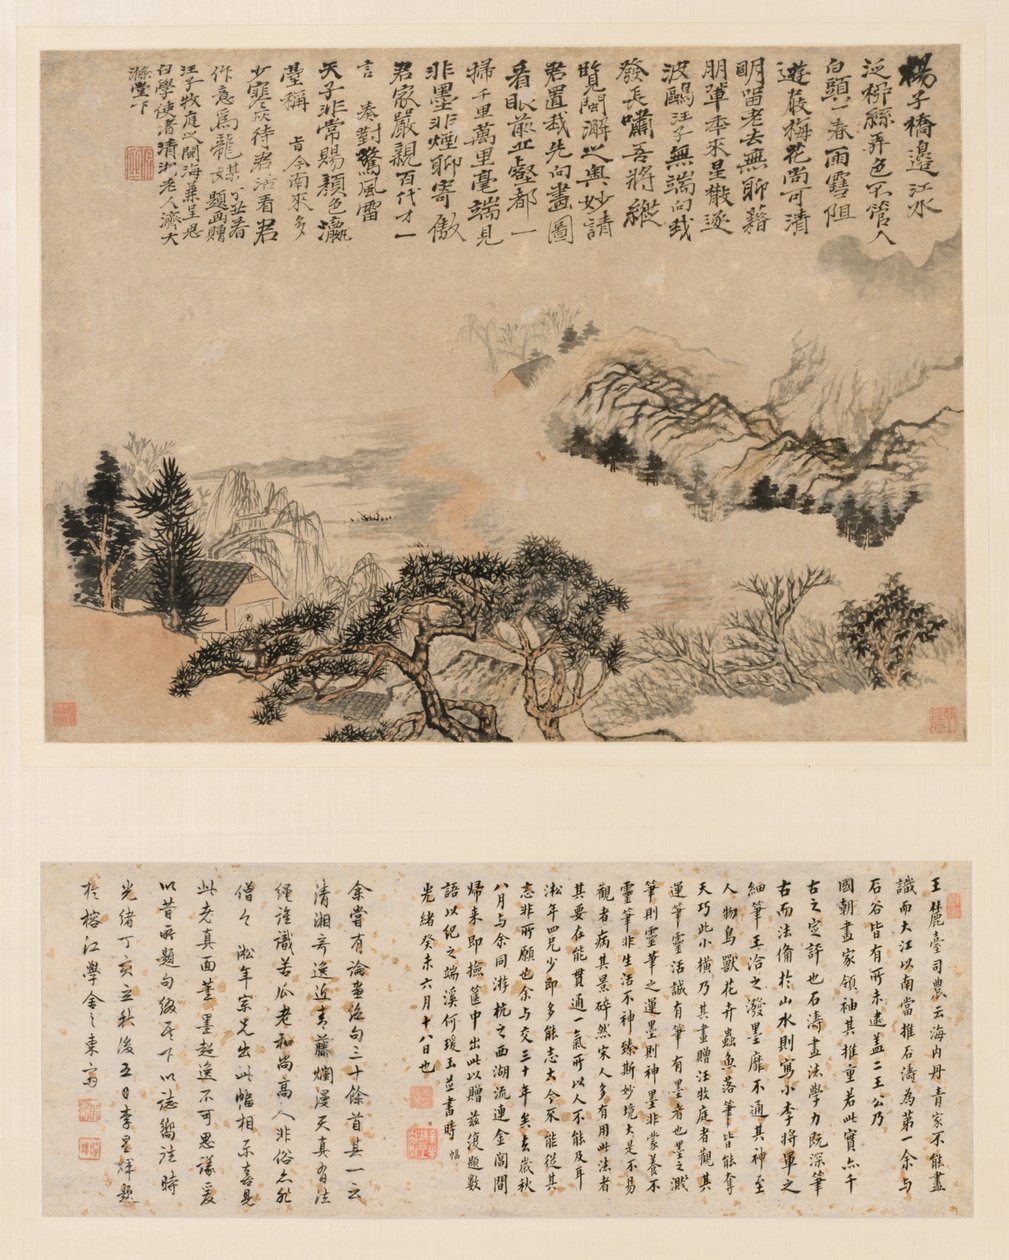 楊子橋邊江水
泛柳絲弄色不管人
白頭一春雨雪阻
遊嚴梅花尚可清
明留老去無聊藉
朋輩本來星散逐
波鷗汪子無端向我
發長嘯吾將縱
覽閩澥之奧妙請
君置我先向畫圖
看眼前丘壑都一
掃千里萬里毫端見
非墨非煙聊寄傲
君家嚴親百代才一
言奏對驚風雷
天子非常賜顏色瀛
臺稱旨今南來多
少寒灰待君活看君
作意為龍媒丁丑春
題画贈
汪子牧庭之閩海兼呈思
白學使者清湘老人濟大
滌堂下
王麓臺司農云海內丹青家不能盡
識而大江以南當推石濤為第一余與
石谷皆有所未逮蓋二王公乃
國朝畫家領袖其推重若此實亦千
古之定評也石濤畫法學力既深筆
古而法備於山水則寫小李將軍之
細筆王洽之潑墨靡不通其神至
人物鳥獸花卉蟲魚落筆皆能奪
天巧此小橫乃其畫贈汪牧庭者觀其
運筆靈活誠有筆有墨者也墨之濺
筆則靈筆之運墨則神墨非蒙養不
靈筆非生活不神臻斯妙境大是不易
觀者病其景碎然宋人多有用此法者
其要在能貫通一氣所以人不能及耳
淞年四兄少即多能志大今來能從其
志非所願也余與交三十年矣去歲秋
八月與余同游杭之西湖流連金閶間
歸來即撿篋中出此以贈茲復題數
語以紀之端溪何瑗玉並書時
光緒癸未六月十八日也
余嘗有論畫絕句三十餘首其一云
清湘奇逸近青藤爛漫天真有法
繩誰識苦瓜老和尚高人非俗亦非
僧今淞年宗兄出此幅相示喜見
此老真面筆墨超逸不可思議爰
以昔所題句綴于下以誌嚮往時
光緒丁亥立秋後五日李星輝題
於榕江學舍之東齋